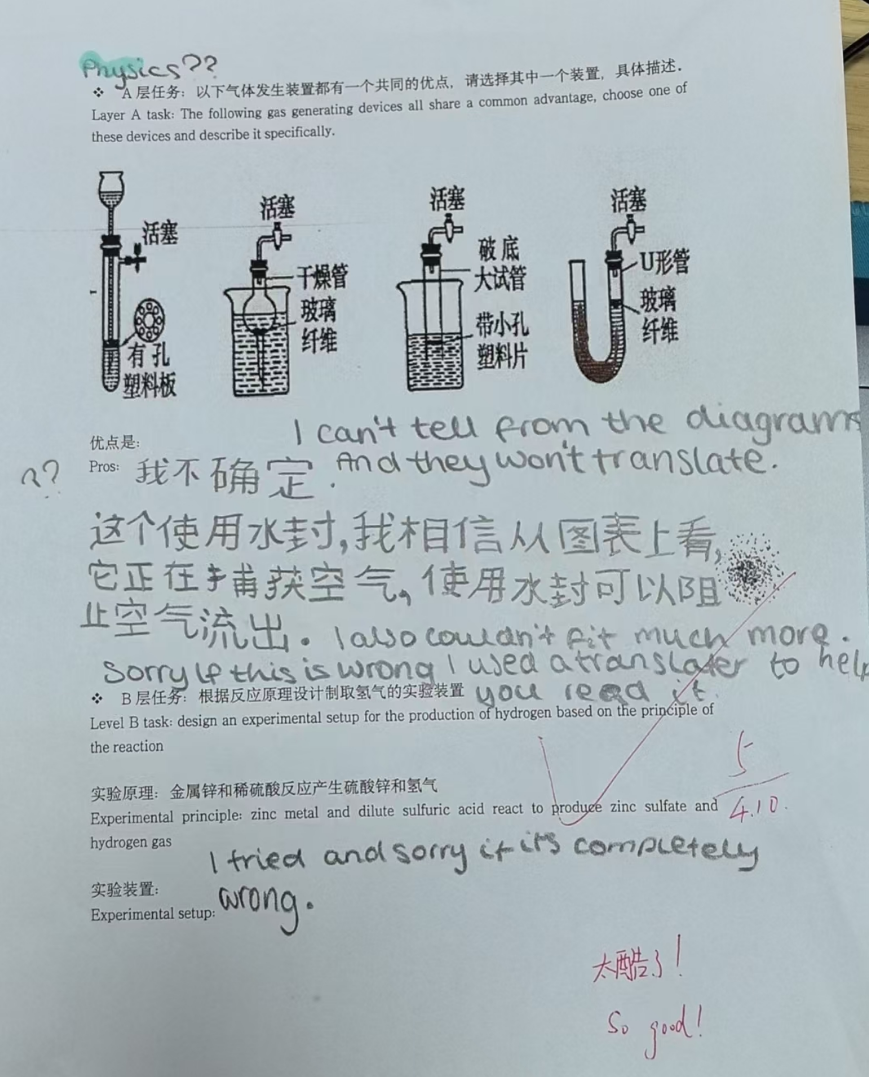 Physics??
❖ A层任务：以下气体发生装置都有一个共同的优点，请选择其中一个装置，具体描述.
Layer A task: The following gas generating devices all share a common advantage, choose one of
these devices and describe it specifically.
活塞
有孔
塑料板
活塞
干燥管
玻璃
纤维
活塞
破底
大试管
带小孔
塑料片
活塞
U形管
玻璃
纤维
I can't tell from the diagrams
优点是:
?? Pros: 我不确定. And they won't translate.
这个使用水封,我相信从图表上看,
它正在捕获空气，使用水封可以阻
止空气流出。I also couldn't fit much more.
Sorry if this is wrong I used a translater to help
you read it.
❖ B层任务：根据反应原理设计制取氢气的实验装置
Level B task: design an experimental setup for the production of hydrogen based on the principle of
the reaction
5
4.10.
实验原理：金属锌和稀硫酸反应产生硫酸锌和氢气
Experimental principle: zinc metal and dilute sulfuric acid react to produce zinc sulfate and
hydrogen gas
I tried and sorry if it's completely
wrong.
实验装置：
Experimental setup:
太酷了!
So good!